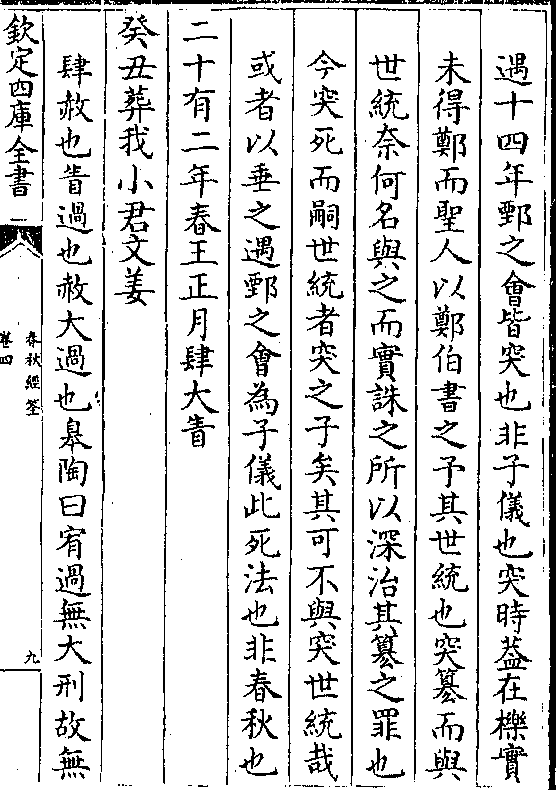 遇十四年鄄之會皆突也非子儀也突時葢在櫟實
未得鄭而聖人以鄭伯書之予其世統也突簒而與
世統奈何名與之而實誅之所以深治其簒之罪也
今突死而嗣世統者突之子矣其可不與突世統哉
或者以垂之遇鄄之會為子儀此死法也非春秋也
二十有二年春王正月肆大眚
癸丑葬我小君文姜
肆赦也眚過也赦大過也皋陶曰宥過無大刑故無
欽定四庫全書
春秋經筌
卷四
九